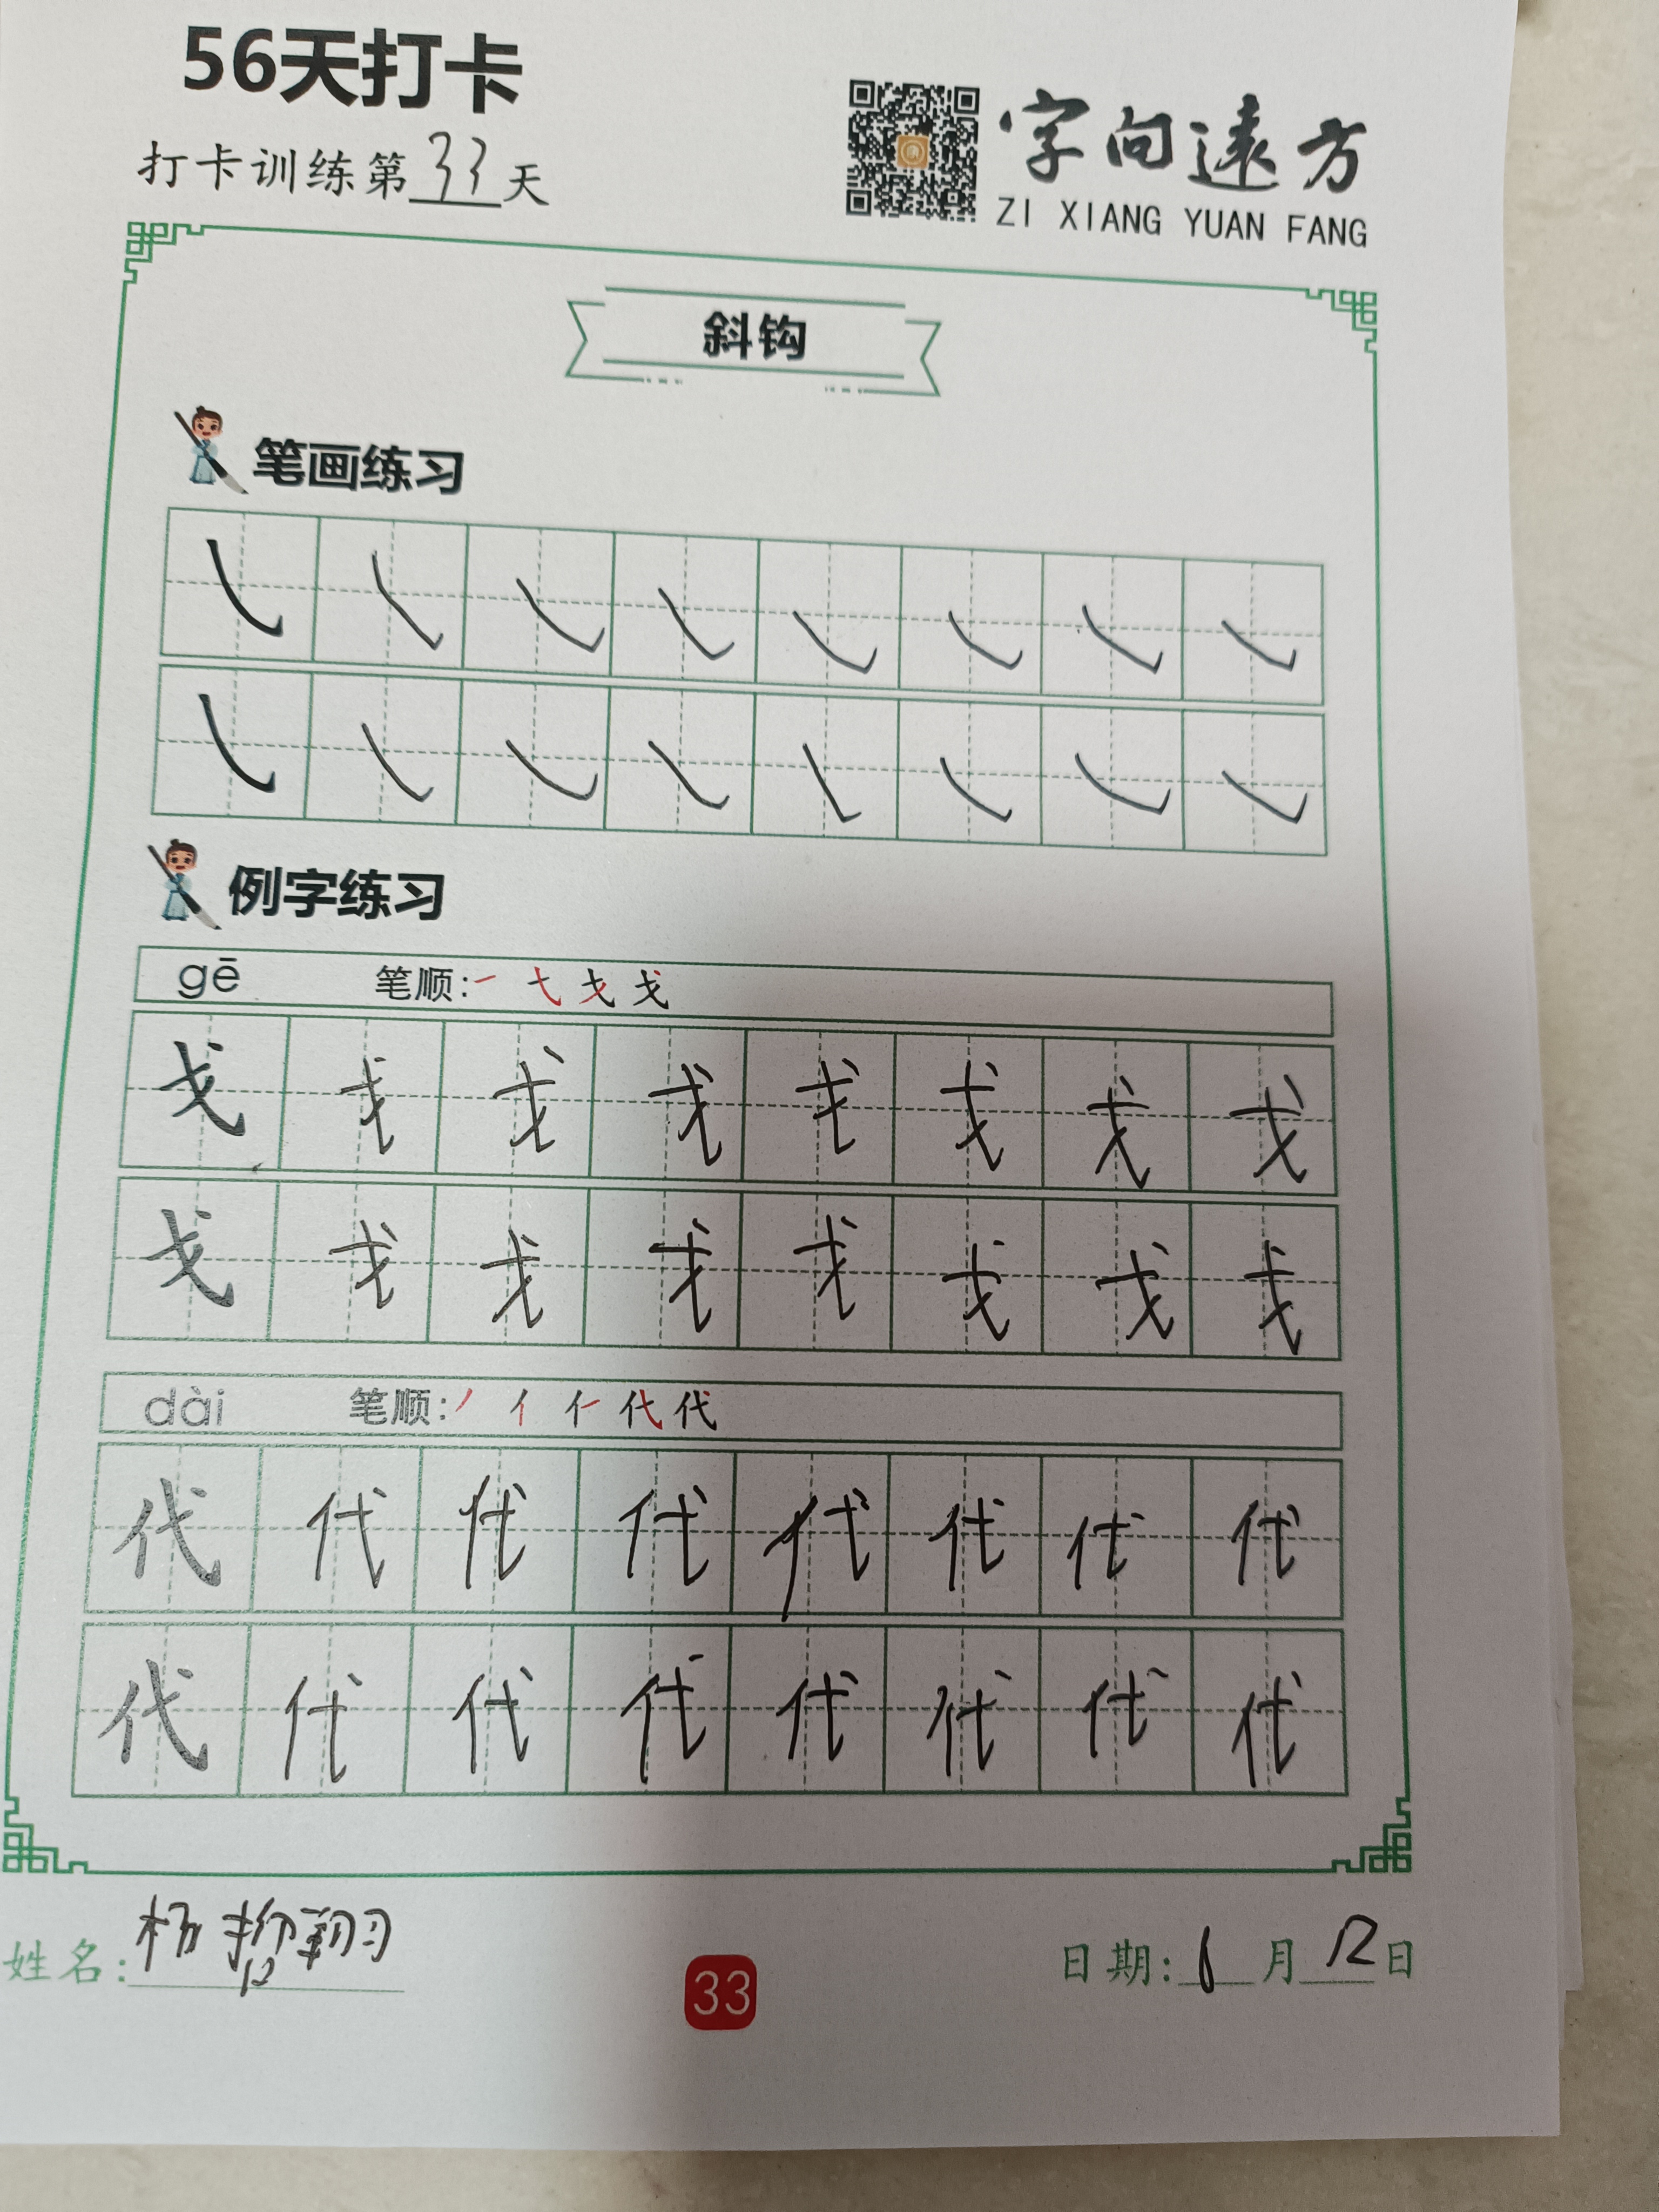 56天打卡
打卡训练第33天
字向遠方
ZI XIANG YUAN FANG
斜钩
笔画练习
例字练习
gē 笔顺:
戈 戈 戈 戈 戈 戈 戈 戈
戈 戈 戈 戈 戈 戈 戈 戈
dài 笔顺: 代 代
代 代 代 代 代 代 代 代
代 代 代 代 代 代 代 代
姓名: 杨
33
日期: 月 12 日